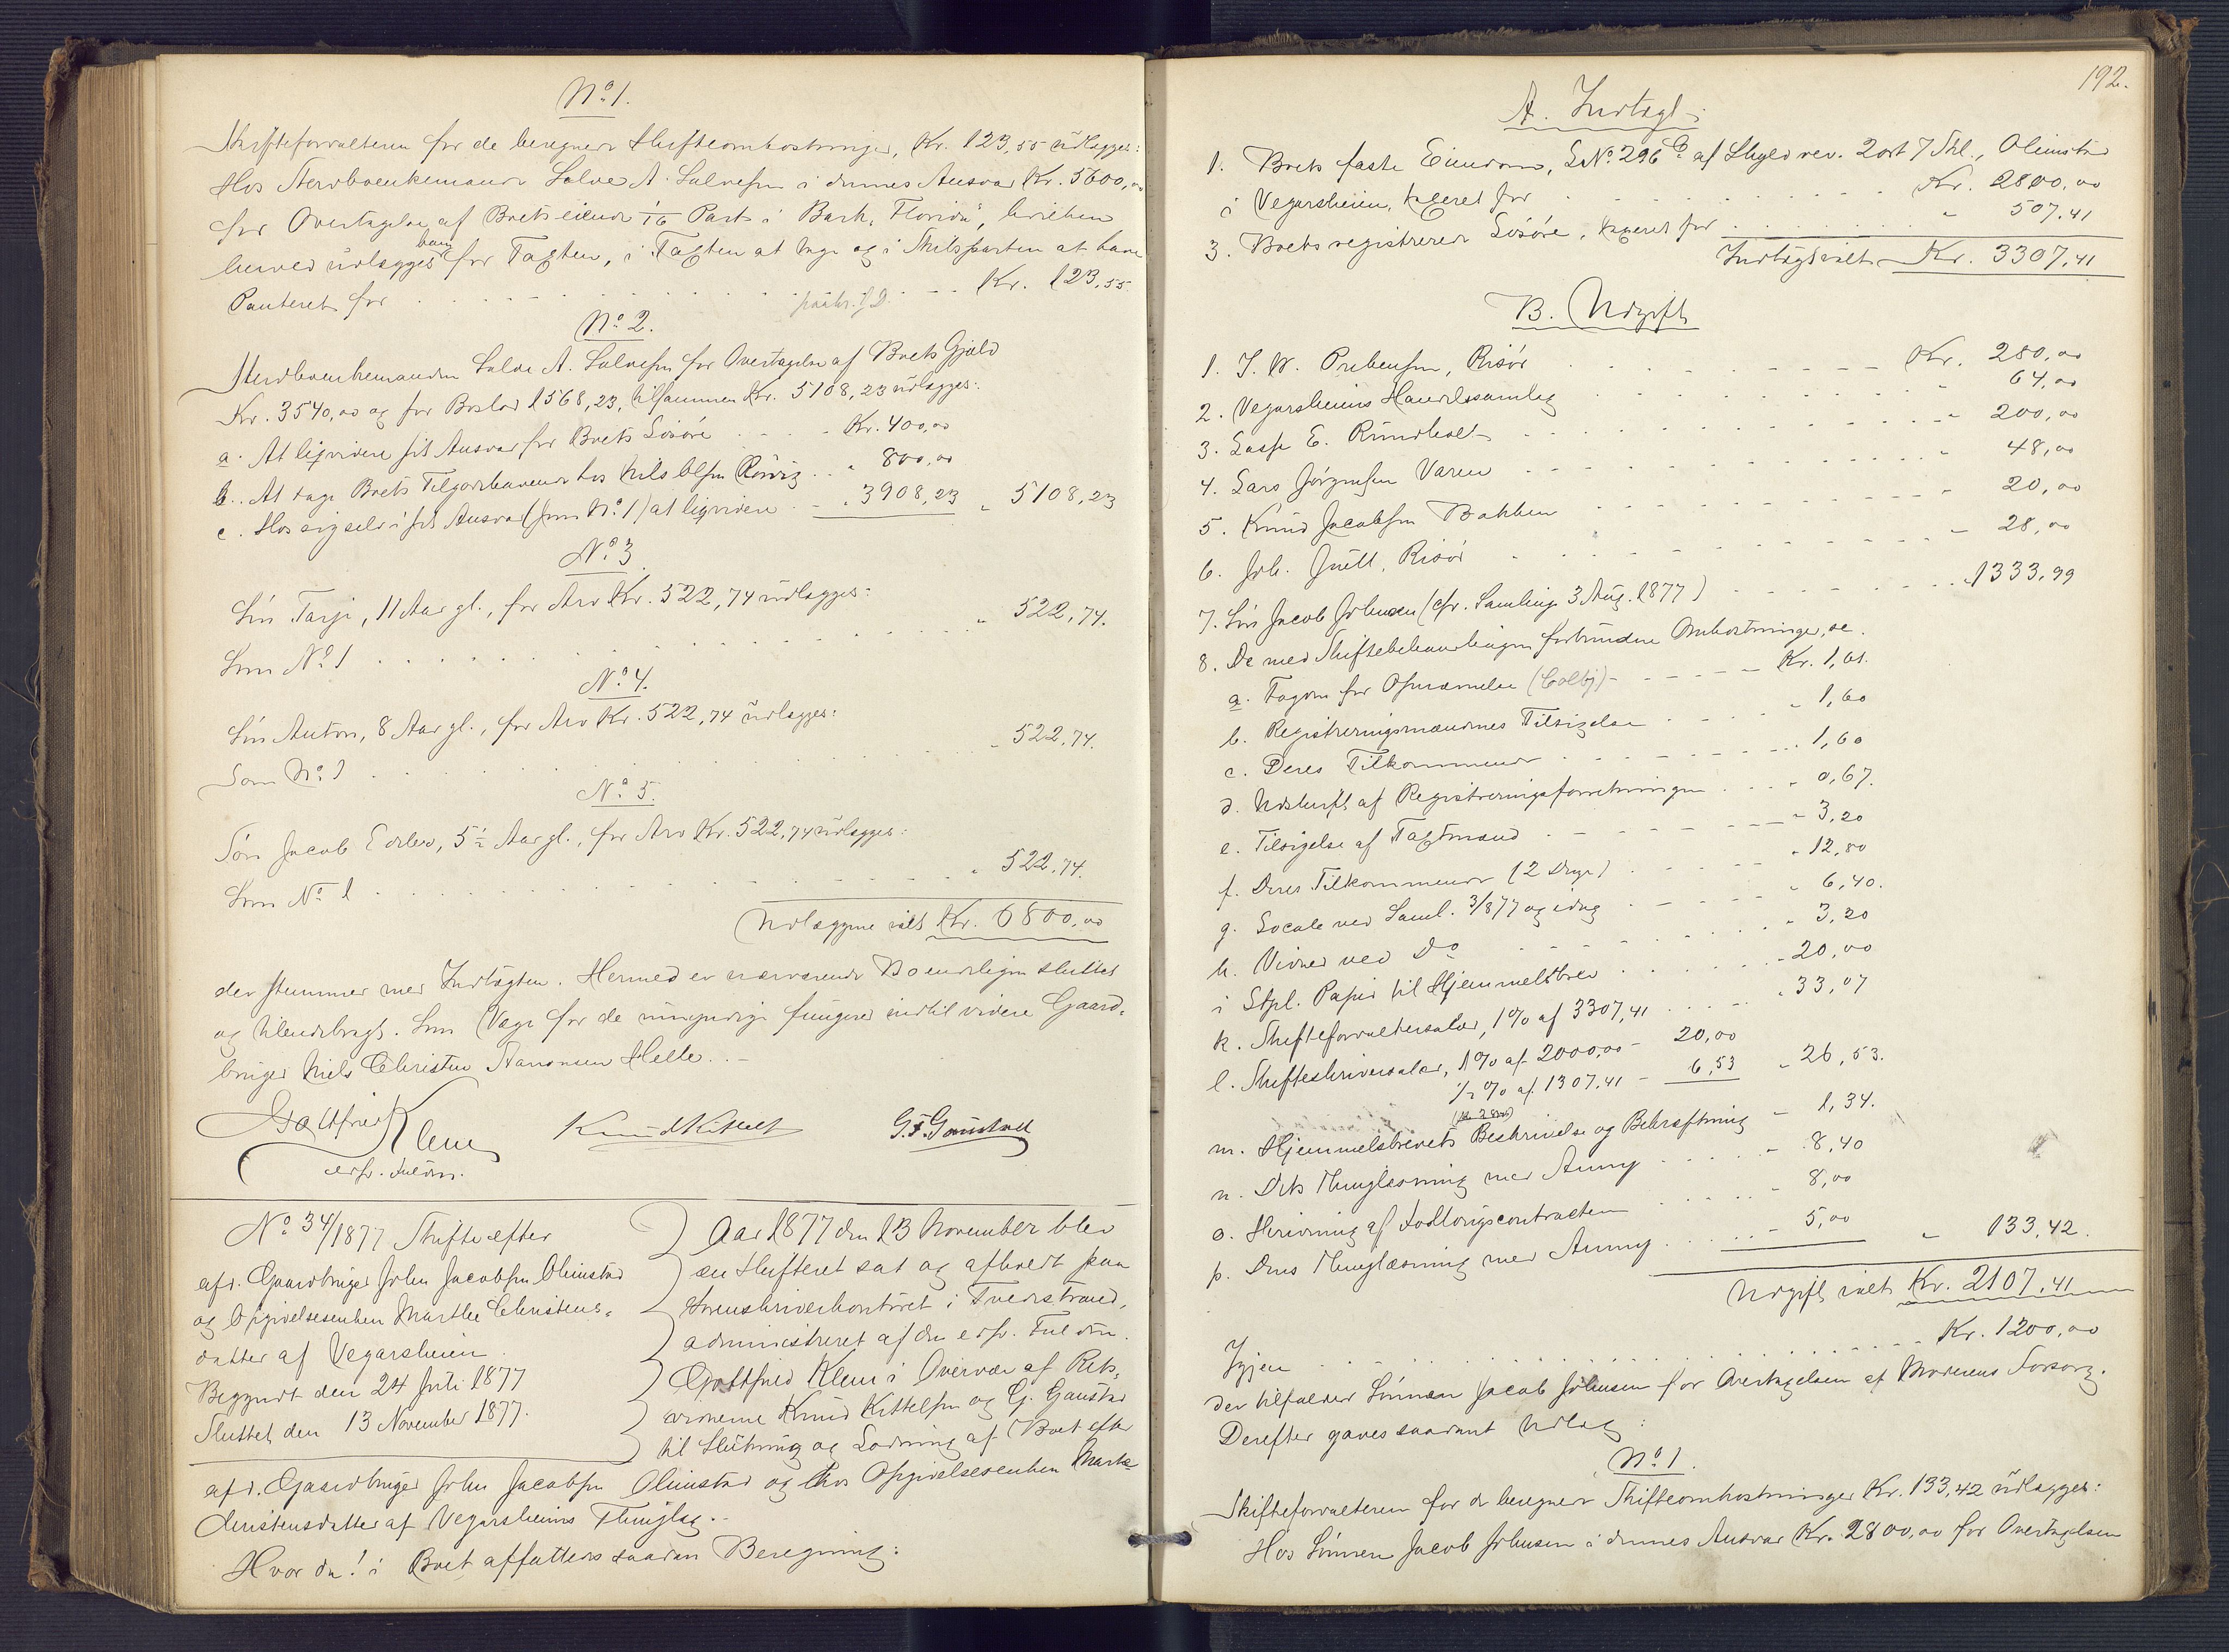 No 1.
Skifteforvalteren for de beregnede Skifteomkostninger, Kr. 123,55 udlægges:
Hos Stervboenkemanden Salve A. Salvesen i dennes Ansvar Kr. 5600,00
for Overtagelse af Boets eiende 1/16 Part i Bark "Florida", hvilken
herved udlægges ham for Taxten, i Taxten at tage og i Skibsparten at have
Panteret for . . . Kr. 123,55
No 2.
Stervboenkemanden Salve A. Salvesen for Overtagelse af Boets Gjæld
Kr. 3540,00 og for Boslod 1568,23, tilsammen Kr. 5108,23 udlægges:
a. At liqvidere sit Ansvar for Boets Løsøre . . . Kr. 400,00
b. At tage Boets Tilgodehavende hos Nils Olsen . . " 800,00
c. Hos sig selv i sit Ansvar (som No 1) at liqvidere . . " 3908,23 " 5108,23
No 3.
Søn Tarje, 11 Aar gl., for Arv Kr. 522,74 udlægges:
Som No 1 . . . " 522,74.
No 4.
Søn Anton, 8 Aar gl., for Arv Kr. 522,74 udlægges:
Som No 1 . . . " 522,74.
No 5.
Søn Jacob Edlev, 5½ Aar gl., for Arv Kr. 522,74 udlægges:
Som No 1 . . . " 522,74.
Udlæggene ialt Kr. 6800,00
der stemmer med Indtægten. Hermed er nærværende Bo endeligen sluttet
og tilendebragt. Som Værge for de umyndige fungerer indtil videre Gaard-
bruger Niels Christen Aanonsen Helle. –
Gottfried Klem Knud Kittels G. F. Gaustad
edsv. Fuldm.
No 34/1877 Skifte efter
afd. Gaardbruger John Jacobsen Olimstad
og Opgivelsesenken Marthe Christens-
datter af Vegarsheien.
Begyndt den 24 Juli 1877
Sluttet den 13 November 1877.
Aar 1877 den 13 November blev
en Skifteret sat og afholdt paa
Sorenskriverkontoret i Tvedestrand,
administreret af den edsv. Fuldm.
Gottfried Klem i Overvær af Rets-
vidnerne Knud Kittelsen og G. Gaustad
til Slutning og Lodning af Boet efter
afd. Gaardbruger John Jacobsen Olimstad og hos Opgivelsesenken Marte
Christensdatter af Vegarsheiens Thinglag. –
Hvor da! i Boet affattedes saadan Beregning:
192.
A. Indtægt:
1. Boets faste Eiendom, LNo 296 b af Skyld rev. 2 ort 7 Skl., Olimstad
i Vegarsheien, taxeret for . . . Kr. 2800,00
3. Boets registrerede Løsøre, taxeret for . . . " 507,41
Indtægt ialt Kr. 3307,41
B. Udgift
1. J. W. Prebensen, Risør . . . Kr. 280,00
2. Vegarsheiens Handelssamlag . . . " 64,00
3. Lasse E. Rundholt . . . " 200,00
4. Lars Jørgensen Varen . . . " 48,00
5. Knud Jacobsen Bakken . . . " 20,00
6. Joh. Juell, Risør . . . " 28,00
7. Søn Jacob Johnsen (cfr. Samling 3 Aug. 1877) . . . " 1333,99
8. De med Skiftebehandlingen forbundne Omkostninger, se.
a. Fogden for Opnævnelse (Colbj) . . . Kr. 1,61.
b. Registreringsmændenes Tilsigelse . . . " 1,60
c. Deres Tilkommende . . . " 1,60
d. Udskrift af Registreringsforretningen . . . " 0,67.
e. Tilsigelse af Taxtmænd . . . " 3,20
f. Deres Tilkommende (2 Dage) . . . " 12,80
g. Locale ved Saml. 3/8 77 og idag . . . " 6,40.
h. Vidner ved Do . . . " 3,20
i Stpl. Papir til Hjemmelsbrev . . . " 20,00
k. Skifteforvaltersalær, 1% af 3307,41 . . . " 33,07
l. Skifteskriversalær, 1% af 2000,00 – 20,00
½ % af 1307,41 – 6,53 " 26,53.
m. Hjemmelsbrevets Beskrivelse og Bekræftning " 1,34.
n. Dets Thinglæsning med Anmg . . . " 8,40
o. Skrivning af Fodloungscontracten . . . " 8,00
p. Dens Thinglæsning med Anmg . . . " 5,00 " 133,42.
Udgift ialt Kr. 2107,41
Igjen . . . Kr. 1200,00
der tilfalder Sønnen Jacob Johnsen for Overtagelsen af Moderens Forsorg.
Derefter gaves saadant Udlæg:
No 1.
Skifteforvalteren for de beregnede Skifteomkostninger Kr. 133,42 udlægges:
Hos Sønnen Jacob Johnsen i dennes Ansvar Kr. 2800,00 for Overtagelsen